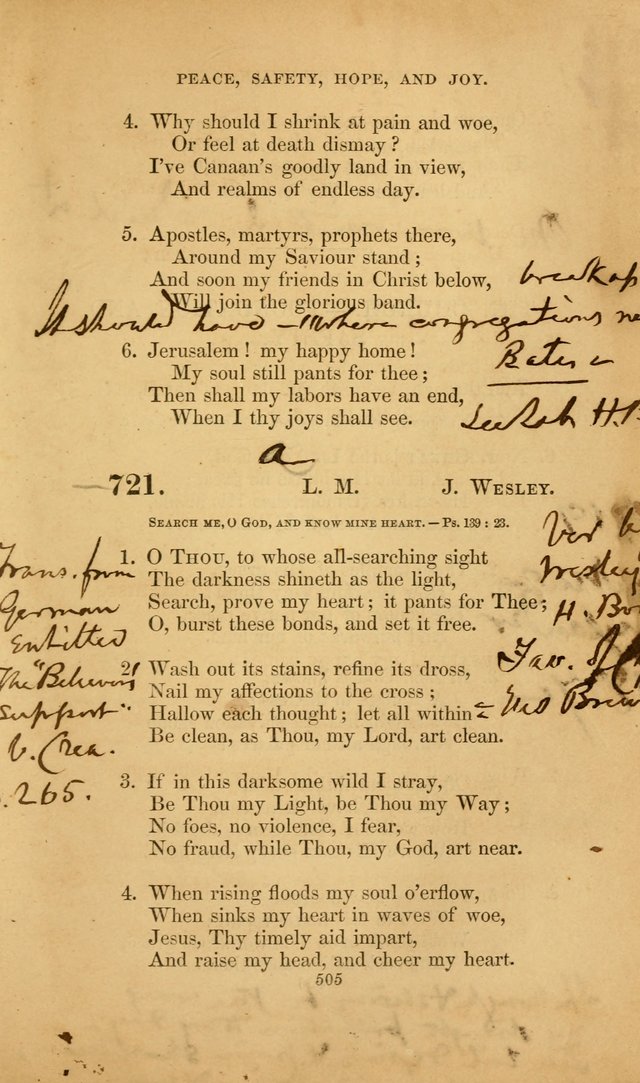 PEACE, SAFETY, HOPE, AND JOY.
4. Why should I shrink at pain and woe,
Or feel at death dismay?
I've Canaan's goodly land in view,
And realms of endless day.
5. Apostles, martyrs, prophets there,
Around my Saviour stand;
And soon my friends in Christ below,
Will join the glorious band.
breakup
It should have – "Where congregations ne
6. Jerusalem! my happy home!
My soul still pants for thee;
Then shall my labors have an end,
When I thy joys shall see.
a
721. L. M. J. WESLEY.
SEARCH ME, O GOD, AND KNOW MINE HEART. — Ps. 139 : 23.
1. O THOU, to whose all-searching sight
The darkness shineth as the light,
Search, prove my heart; it pants for Thee;
O, burst these bonds, and set it free.
Trans. from
German
Entitled
The "Believers'
Support"
265.
Wesley
2. Wash out its stains, refine its dross,
Nail my affections to the cross;
Hallow each thought; let all within
Be clean, as Thou, my Lord, art clean.
3. If in this darksome wild I stray,
Be Thou my Light, be Thou my Way;
No foes, no violence, I fear,
No fraud, while Thou, my God, art near.
4. When rising floods my soul o'erflow,
When sinks my heart in waves of woe,
Jesus, Thy timely aid impart,
And raise my head, and cheer my heart.
505